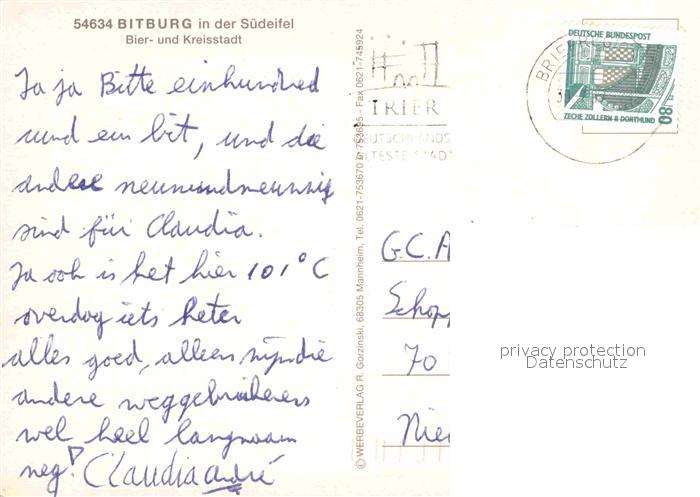 54634 BITBURG in der Südeifel
Bier- und Kreisstadt
Ja ja Bitte einhundred
und ein bit, und die
andere neunundneunzig
sind für Claudia.
Ja ooh is het hier 101°C
overdag iets heter
alles goed, alleen zijn die
andere weggebruikers
wel heel langzaam
neg! Claudia André
© WERBEVERLAG R. Gorzinski, 68305 Mannheim, Tel. 0621-753670 + 753695 - Fax 0621-745924
TRIER
DEUTSCHLANDS
ÄLTESTE STADT
BRIE
DEUTSCHE BUNDESPOST
80
ZECHE ZOLLERN II · DORTMUND
G.C.A
Schop
70
Nie
privacy protection
Datenschutz